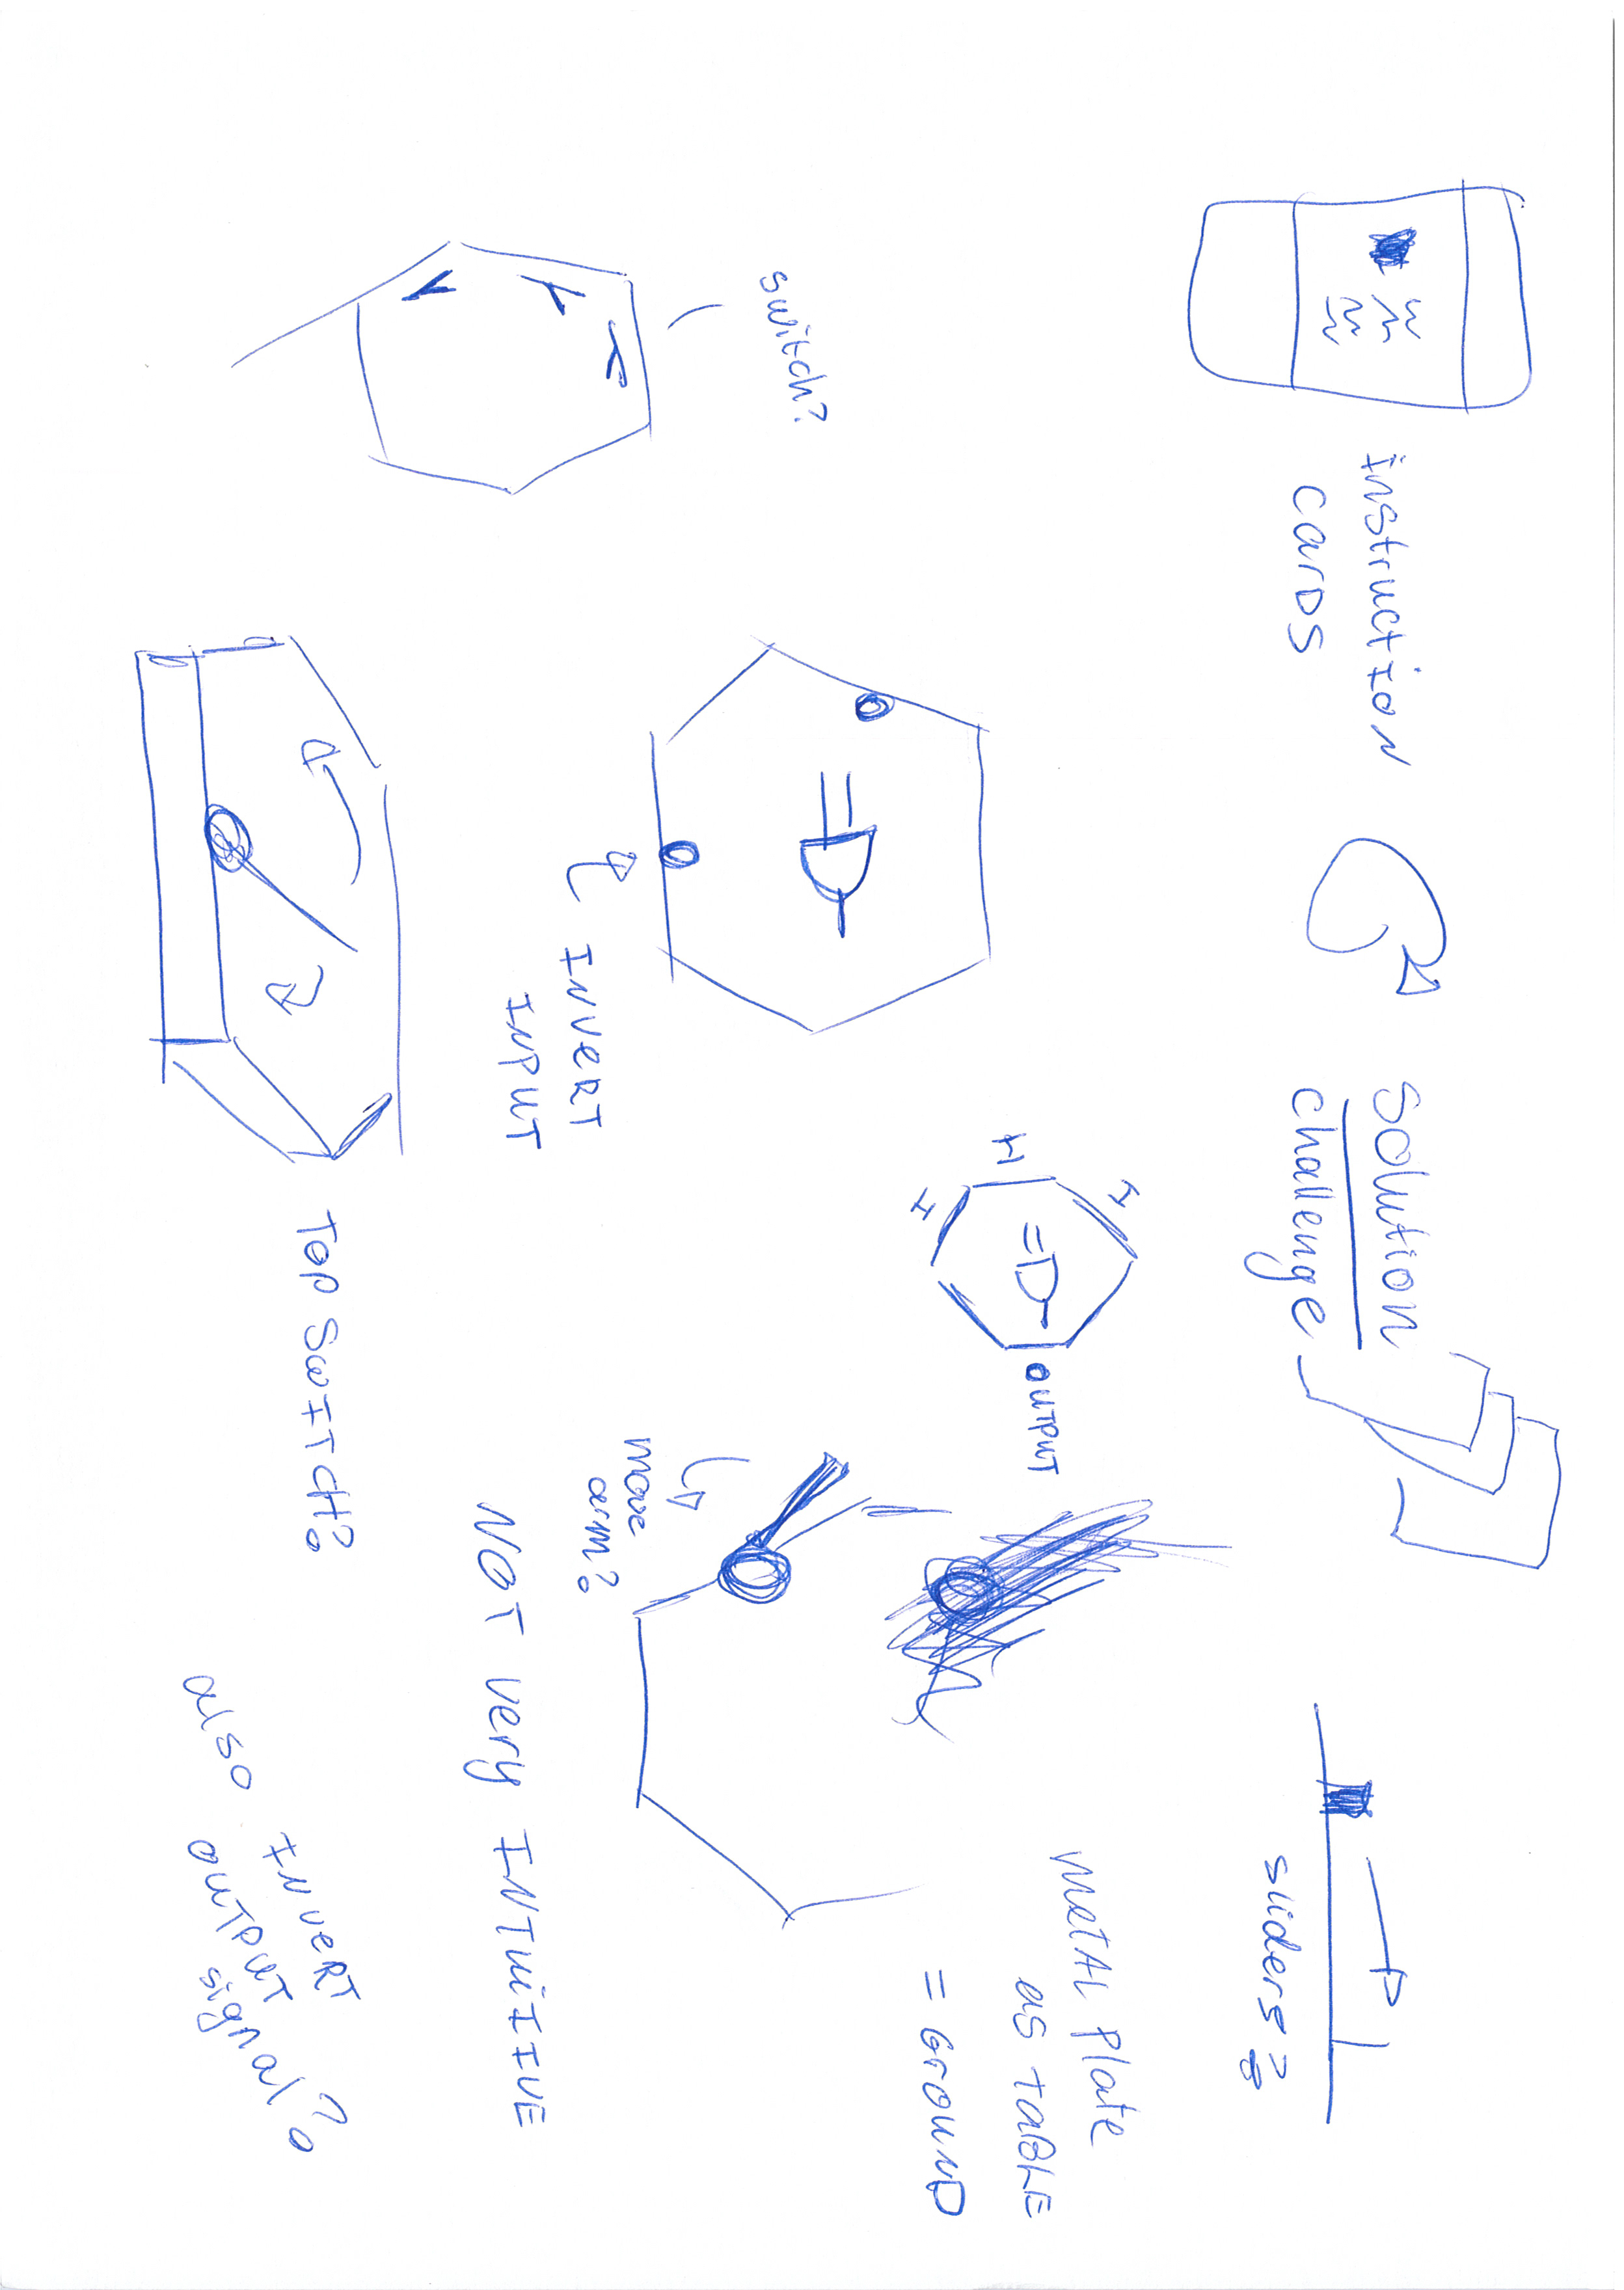 instruction
cards
solution
challenge
sliders?
switch?
INVERT
INPUT
I
I
I
OUTPUT
METAL Plate
as TABLE
= GrounD
move
arm?
TOP SWITCH?
NOT very INTUITIVE
also INVERT
OUTPUT
signal?